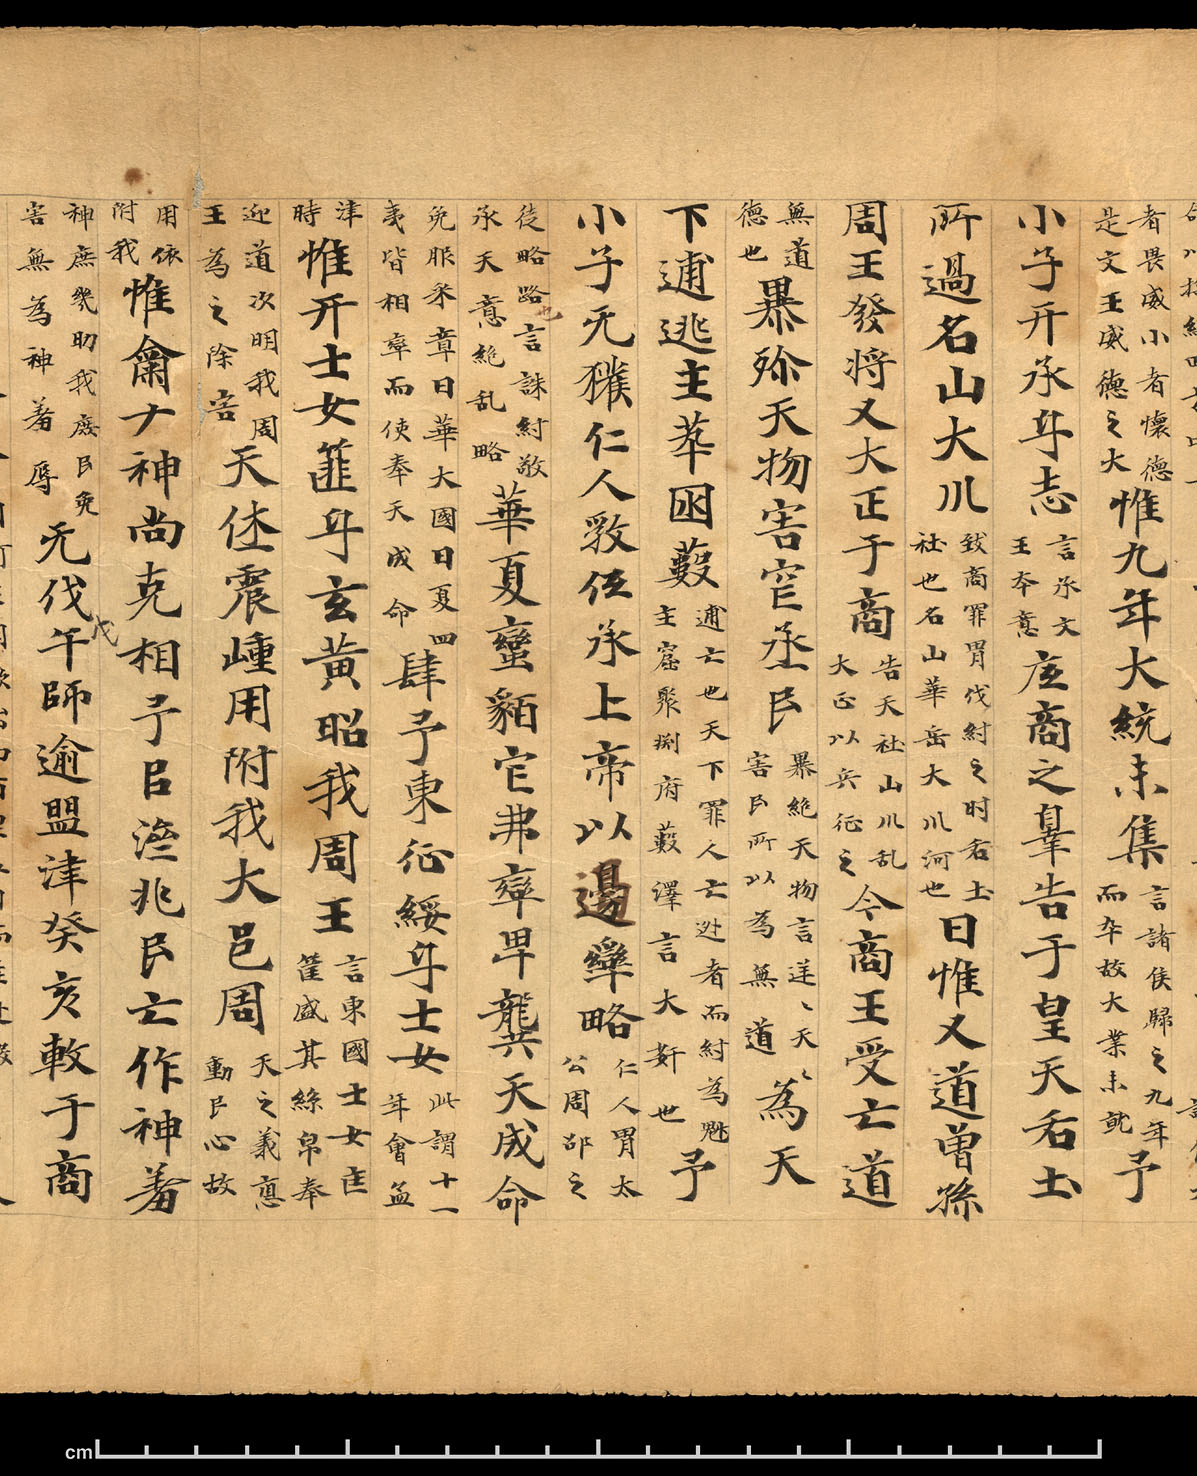 者畏威小者懷德是文王威德之大惟九年大統未集言諸侯歸之九年而卒故大業未就予
小子开承𠂈志言承文王本意底商之辠告于皇天后土
所過名山大川致商罪胃伐紂之时后土社也名山華岳大川河也曰惟又道曽孫
周王發将又大正于商告天社山川乱大正以兵征之今商王受亡道
無道德也暴殄天物害𠈌烝民暴絶天物言逆〻天〻害民所以為無道為天
下逋逃主萃囦藪逋亡也天下罪人亡迯者而紂為魁主窟聚捌府藪澤言大姧也予
小子旡獲仁人敦伍承上帝以遏䜌略仁人胃太公周邵之
徒略路也言誅紂敬承天意絶乱略華夏蠻貊它弗率畀龔天成命
免服采章曰華大國曰夏四夷皆相率而使奉天成命肆予東征綏𠂈士女此謂十一年會孟
津時惟开士女篚𠂈玄黄昭我周王言東國士女匡筐盛其絲帛奉
迎道次明我周王為之除害天休震㣫用附我大邑周天之義惪動民心故
用依附我惟爾ナ神尚克相予㠯渡兆民亡作神羞
神庶幾助我庶民免害無為神羞辱旡伐戊午師逾盟津癸亥敶于商